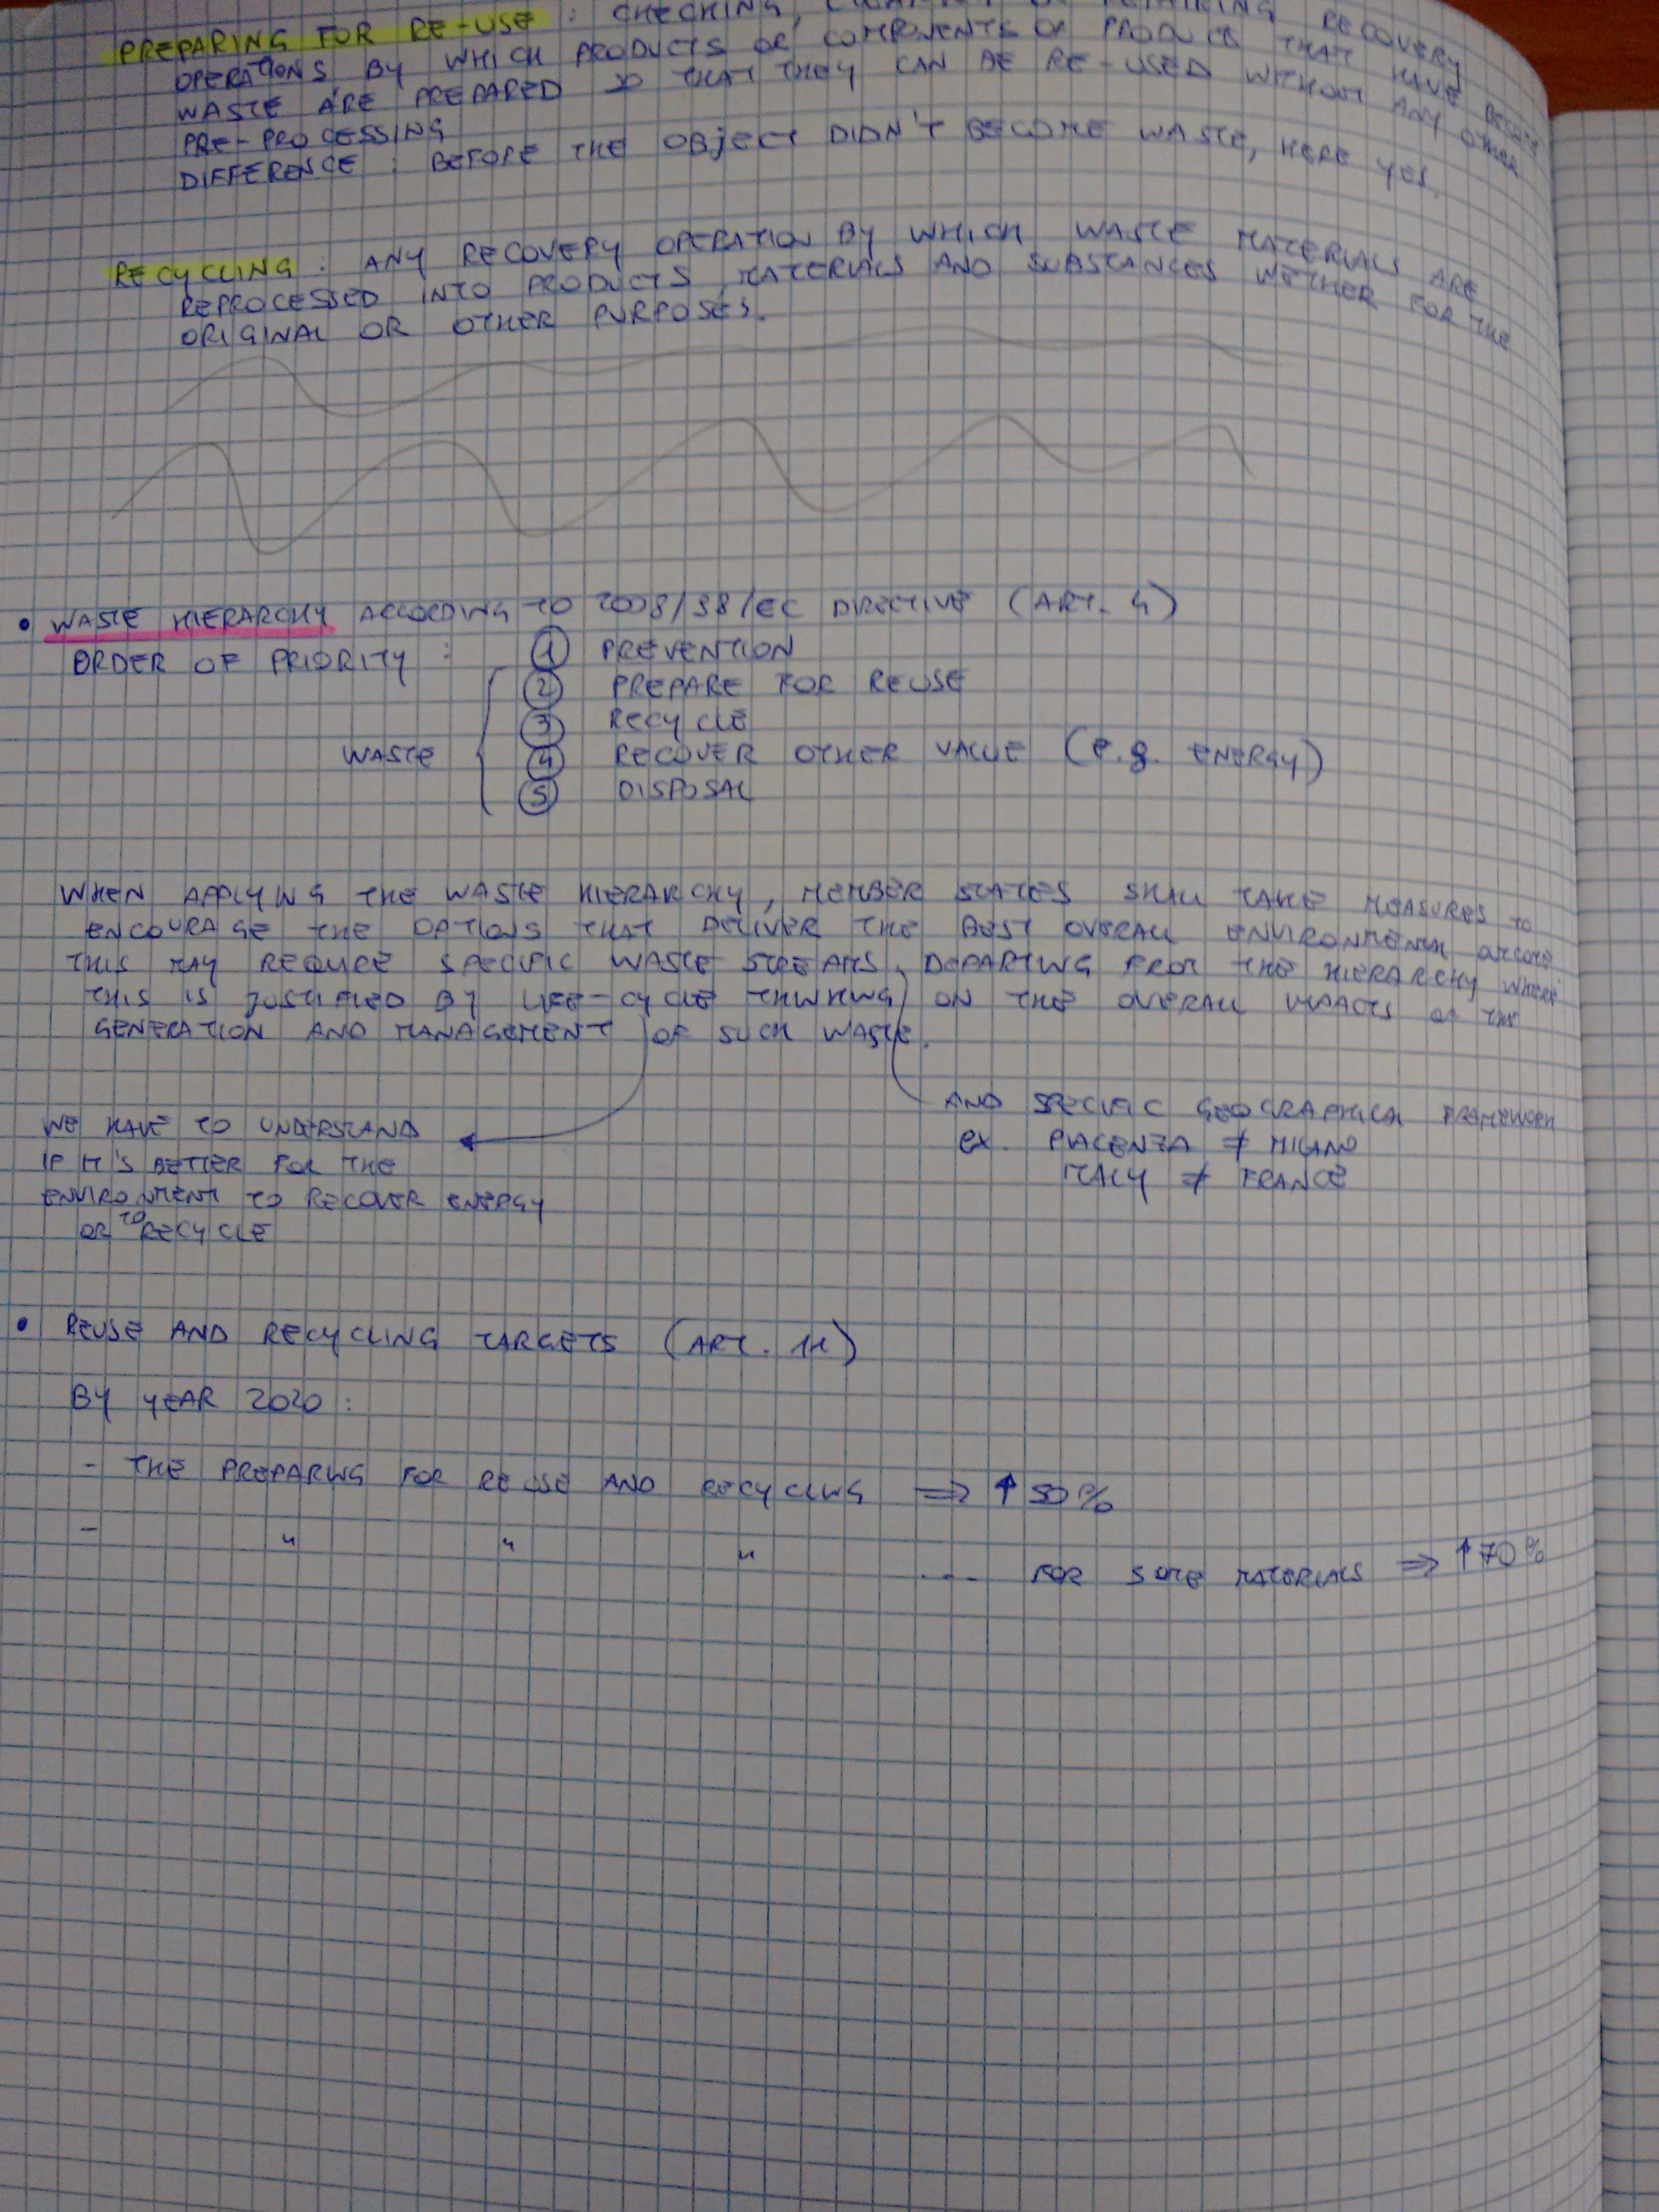 PREPARING FOR RE-USE : CHECKING, REPAIRING RECOVERY
OPERATIONS BY WHICH PRODUCTS OR COMPONENTS OF PRODUCTS THAT HAVE BECOME
WASTE ARE PREPARED SO THAT THEY CAN BE RE-USED WITHOUT ANY OTHER
PRE-PROCESSING
DIFFERENCE : BEFORE THE OBJECT DIDN'T BECOME WASTE, HERE YES.
RECYCLING : ANY RECOVERY OPERATION BY WHICH WASTE MATERIALS ARE
REPROCESSED INTO PRODUCTS, MATERIALS AND SUBSTANCES WETHER FOR THE
ORIGINAL OR OTHER PURPOSES.
• WASTE HIERARCHY ACCORDING TO 2008/98/EC DIRECTIVE (ART. 4)
ORDER OF PRIORITY : 1 PREVENTION
2 PREPARE FOR REUSE
3 RECYCLE
WASTE 4 RECOVER OTHER VALUE (e.g. ENERGY)
5 DISPOSAL
WHEN APPLYING THE WASTE HIERARCHY, MEMBER STATES SHALL TAKE MEASURES TO
ENCOURAGE THE OPTIONS THAT DELIVER THE BEST OVERALL ENVIRONMENTAL OUTCOME
THIS MAY REQUIRE SPECIFIC WASTE STREAMS, DEPARTING FROM THE HIERARCHY WHERE
THIS IS JUSTIFIED BY LIFE-CYCLE THINKING ON THE OVERALL IMPACTS OF THE
GENERATION AND MANAGEMENT OF SUCH WASTE.
AND SPECIFIC GEOGRAPHICAL FRAMEWORK
ex. PIACENZA ≠ MILANO
ITALY ≠ FRANCE
WE HAVE TO UNDERSTAND
IF IT'S BETTER FOR THE
ENVIRONMENT TO RECOVER ENERGY
OR TO RECYCLE
• REUSE AND RECYCLING TARGETS (ART. 11)
BY YEAR 2020 :
- THE PREPARING FOR REUSE AND RECYCLING ⇒ ↑ 50%
- " " " .... FOR SOME MATERIALS ⇒ ↑ 70%